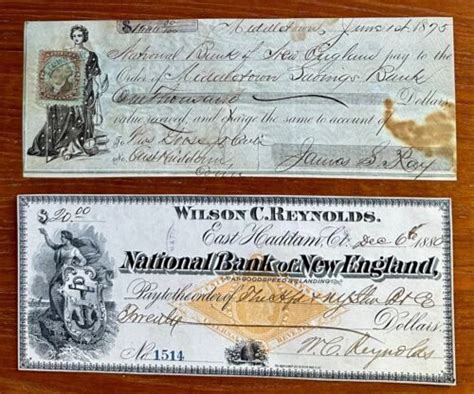 $1000.00 Middletown, June 1st 1875
National Bank of New England pay to the
Order of Middletown Savings Bank
One Thousand Dollars
value received, and charge the same to account of
To
East Haddam, James S. Ray
Conn
WILSON C. REYNOLDS.
$20.00
East Haddam, Ct. Dec 6th 1880
National Bank of New England,
AT GOODSPEED'S LANDING
Pay to the order of
Twenty Dollars.
No. 1514 W.C. Reynolds